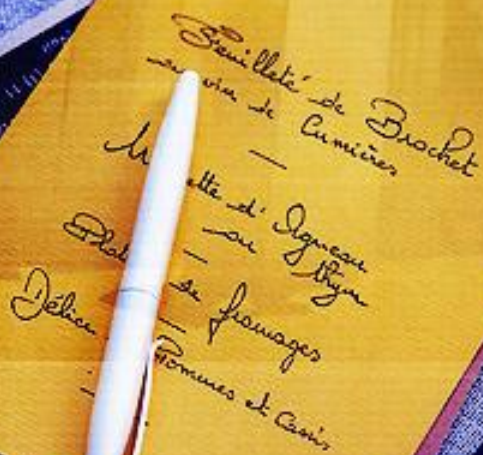 Feuilleté de Brochet
au vin de Cumières
—
ette d'Agneau
au thym
—
Plat de fromages
—
Délice Pommes et Cassis
—